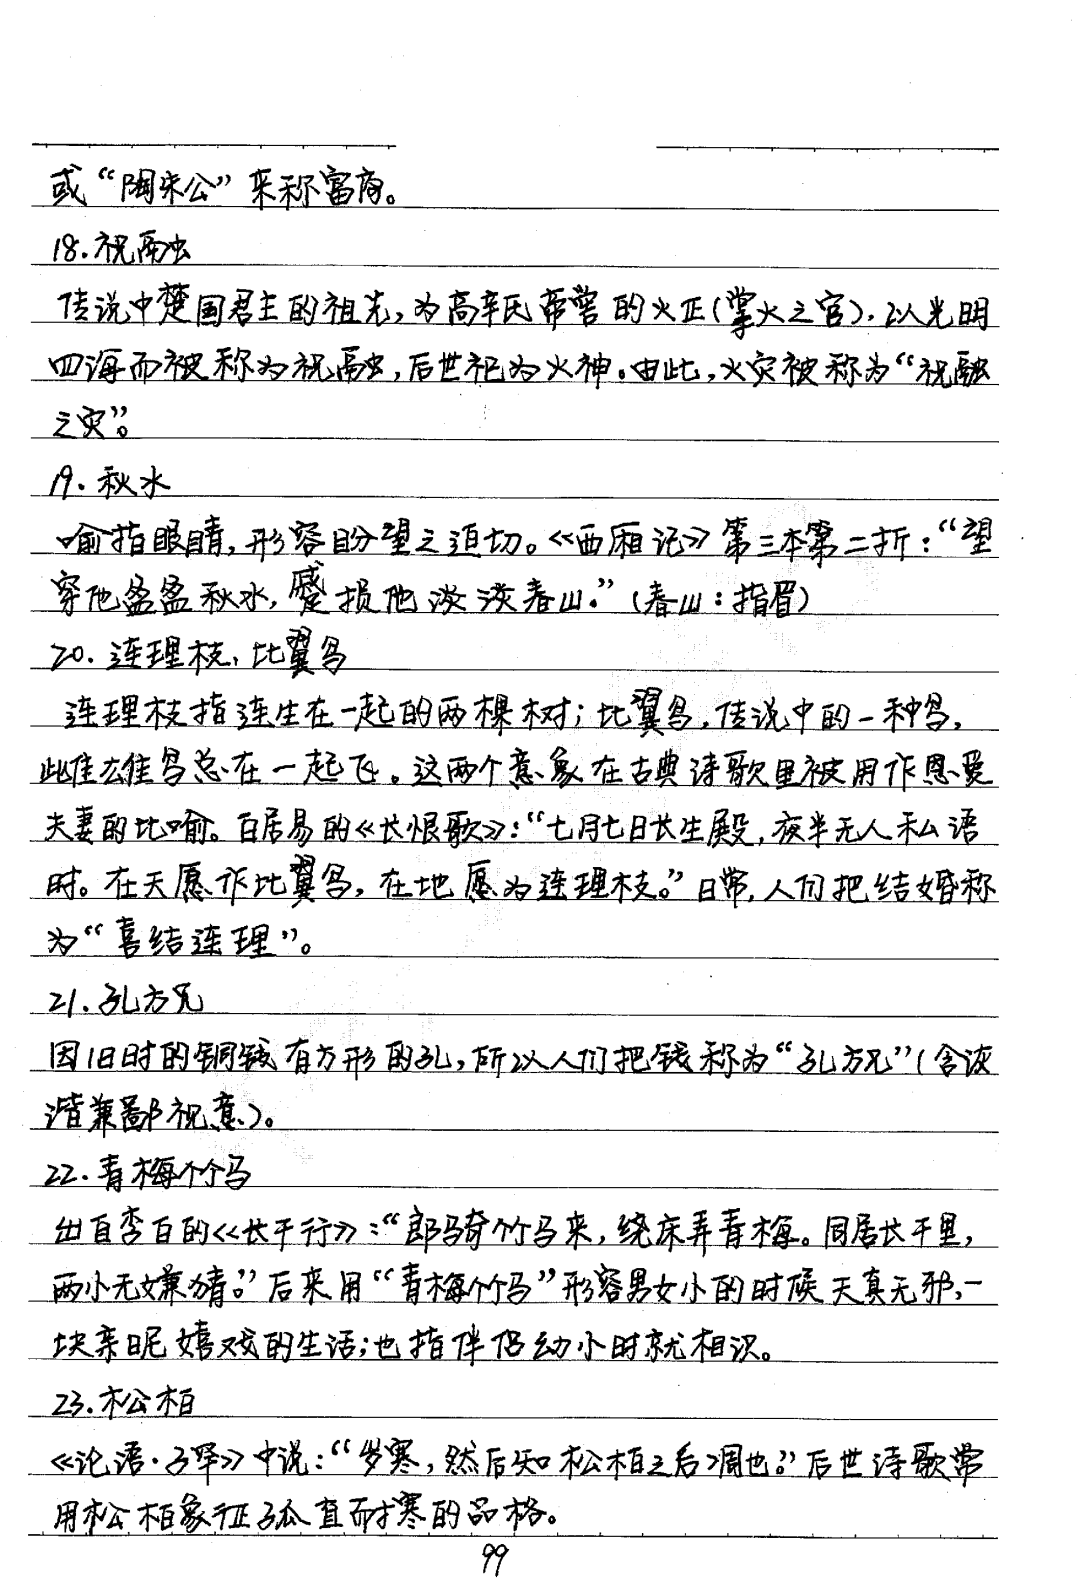 或“陶朱公”来称富商。
18.祝融
传说中楚国君主的祖先,为高辛氏帝喾的火正(掌火之官),以光明
四海而被称为祝融,后世祀为火神。由此,火灾被称为“祝融
之灾”。
19.秋水
喻指眼睛,形容盼望之迫切。《西厢记》第三本第二折:“望
穿他盈盈秋水,蹙损他淡淡春山。”(春山:指眉)
20.连理枝、比翼鸟
连理枝指连生在一起的两棵树;比翼鸟,传说中的一种鸟,
雌雄鸟总在一起飞。这两个意象在古典诗歌里被用作恩爱
夫妻的比喻。白居易的《长恨歌》:“七月七日长生殿,夜半无人私语
时。在天愿作比翼鸟,在地愿为连理枝。”日常,人们把结婚称
为“喜结连理”。
21.孔方兄
因旧时的铜钱有方形的孔,所以人们把钱称为“孔方兄”(含诙
谐兼鄙视意)。
22.青梅竹马
出自李白的《长干行》:“郎骑竹马来,绕床弄青梅。同居长干里,
两小无嫌猜。”后来用“青梅竹马”形容男女小的时候天真无邪,一
块亲昵嬉戏的生活;也指伴侣幼小时就相识。
23.松柏
《论语·子罕》中说:“岁寒,然后知松柏之后凋也。”后世诗歌常
用松柏象征孤直耐寒的品格。
99